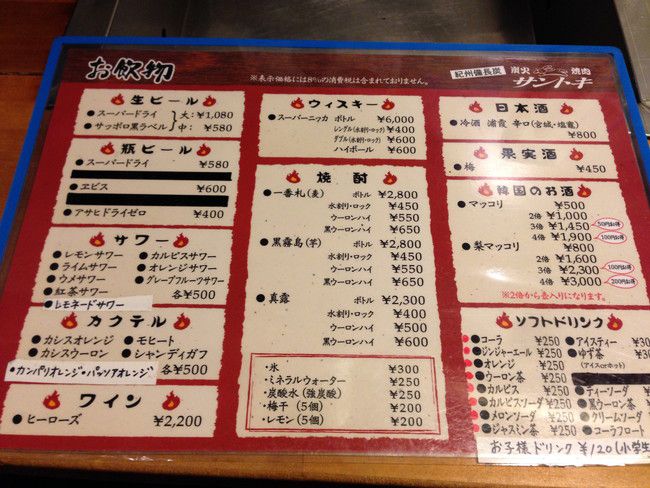 お飲物
※表示価格には8%の消費税は含まれておりません。
紀州備長炭
炭火 焼肉
サントキ
生ビール
●スーパードライ
●サッポロ黒ラベル
大:¥1,080
中: ¥580
瓶ビール
●スーパードライ ¥580
●ヱビス ¥600
●アサヒドライゼロ ¥400
サワー
●レモンサワー ●カルピスサワー
●ライムサワー ●オレンジサワー
●ウメサワー ●グレープフルーツサワー
●紅茶サワー 各¥500
●レモネードサワー
カクテル
●カシスオレンジ ●モヒート
●カシスウーロン ●シャンディガフ
●カンパリオレンジ・パッソアオレンジ 各¥500
ワイン
●ヒーローズ ¥2,200
ウィスキー
●スーパーニッカ ボトル ¥6,000
シングル(水割り・ロック) ¥400
ダブル(水割り・ロック) ¥600
ハイボール ¥600
焼酎
●一番札(麦) ボトル ¥2,800
水割り・ロック ¥450
ウーロンハイ ¥550
黒ウーロンハイ ¥650
●黒霧島(芋) ボトル ¥2,800
水割り・ロック ¥450
ウーロンハイ ¥550
黒ウーロンハイ ¥650
●真露 ボトル ¥2,300
水割り・ロック ¥400
ウーロンハイ ¥500
黒ウーロンハイ ¥600
・氷 ¥300
・ミネラルウォーター ¥250
・炭酸水(強炭酸) ¥250
・梅干(5個) ¥200
・レモン(5個) ¥200
日本酒
●冷酒 浦霞 辛口(宮城・塩竈)
¥800
果実酒
●梅 ¥450
韓国のお酒
●マッコリ ¥500
2倍 ¥1,000
3倍 ¥1,450 50円お得
4倍 ¥1,900 100円お得
●梨マッコリ ¥800
2倍 ¥1,600
3倍 ¥2,300 100円お得
4倍 ¥3,000 200円お得
※2倍から壺入りになります。
ソフトドリンク
●コーラ ¥250 ●アイスティー
●ジンジャーエール ¥250 ●ゆず茶
●オレンジ ¥250 (アイスorホット)
●ウーロン茶 ¥250
●カルピス ¥250 ●ティーソーダ
●カルピスソーダ ¥250 ●黒ウーロン茶
●メロンソーダ ¥250 ●クリームソーダ
●ジャスミン茶 ¥250 ●コーラフロート
お子様ドリンク ¥120(小学生